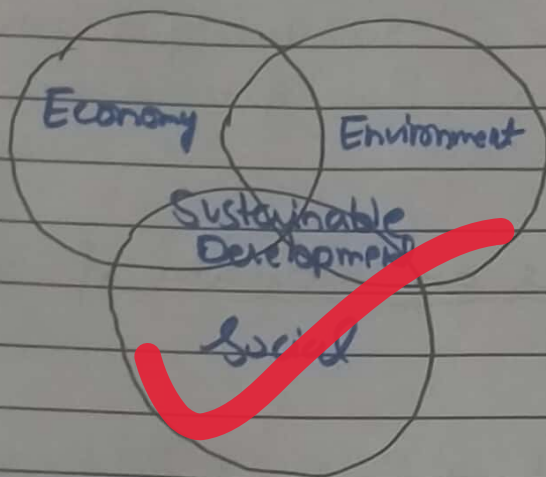 Economy
Environment
Sustainable
Development
Social